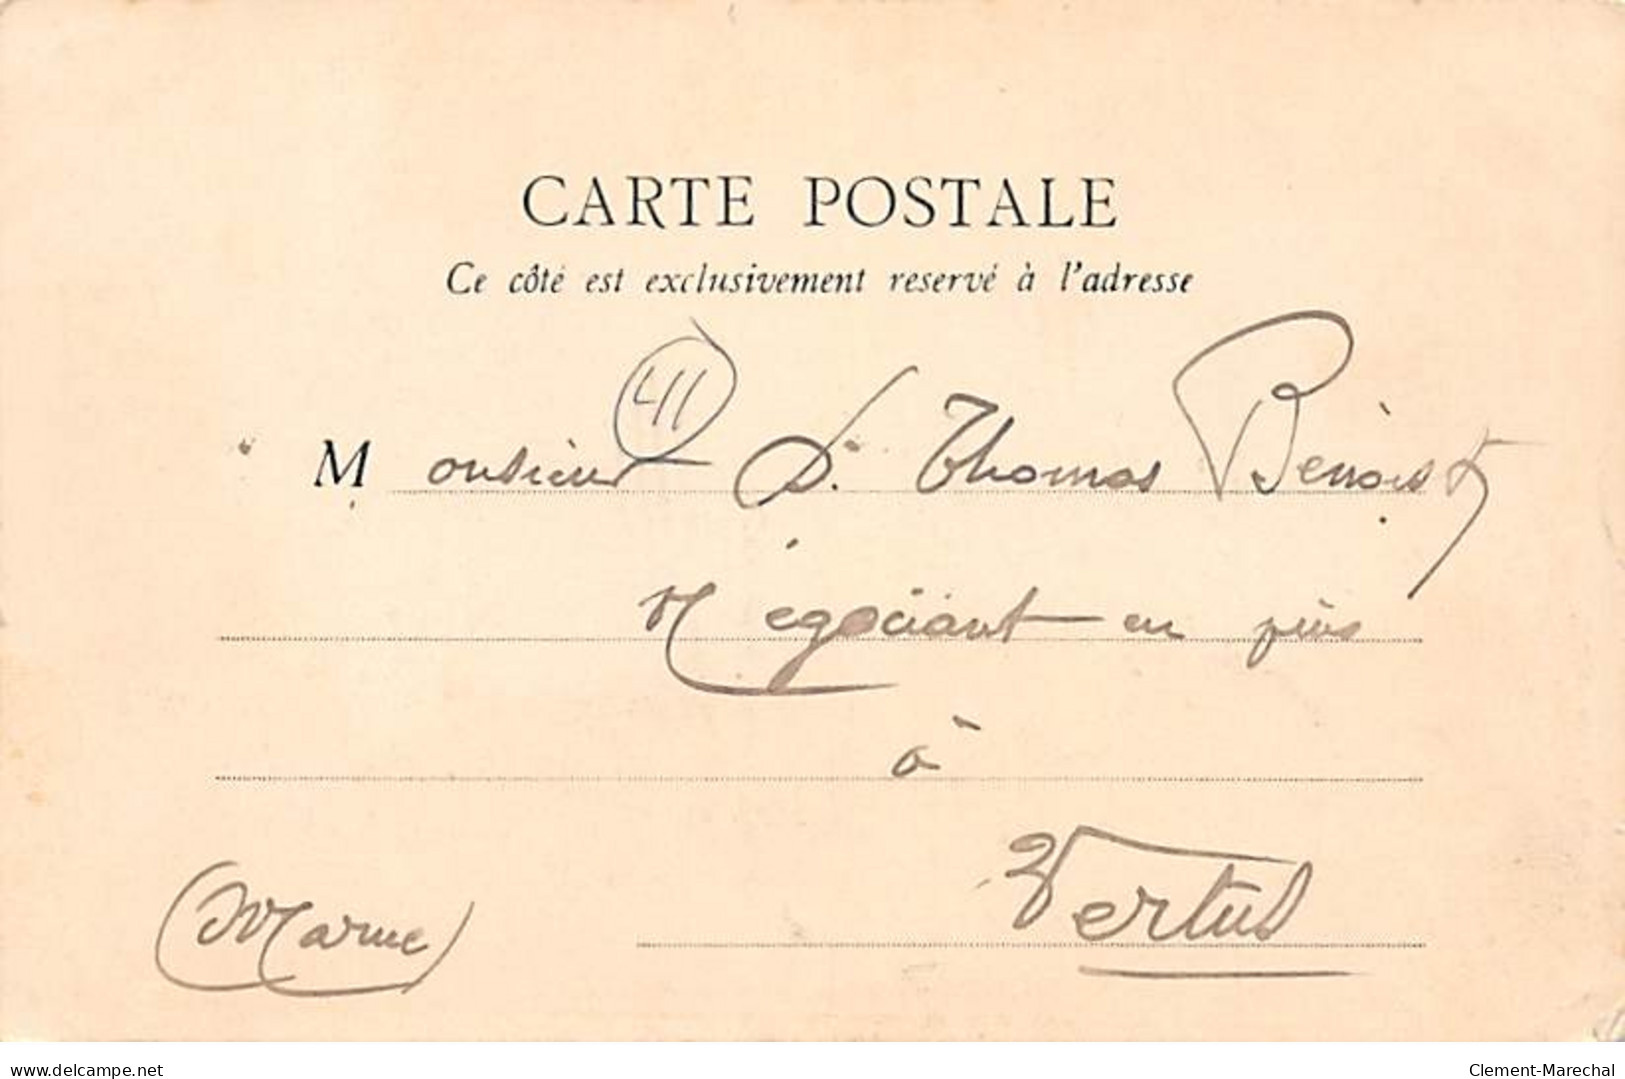 CARTE POSTALE
Ce côté est exclusivement reservé à l'adresse
411
Monsieur S. Thomas Benoist
Négociant en vins
à
Vertus
(Marne)
delcampe.net
Clement-Marechal